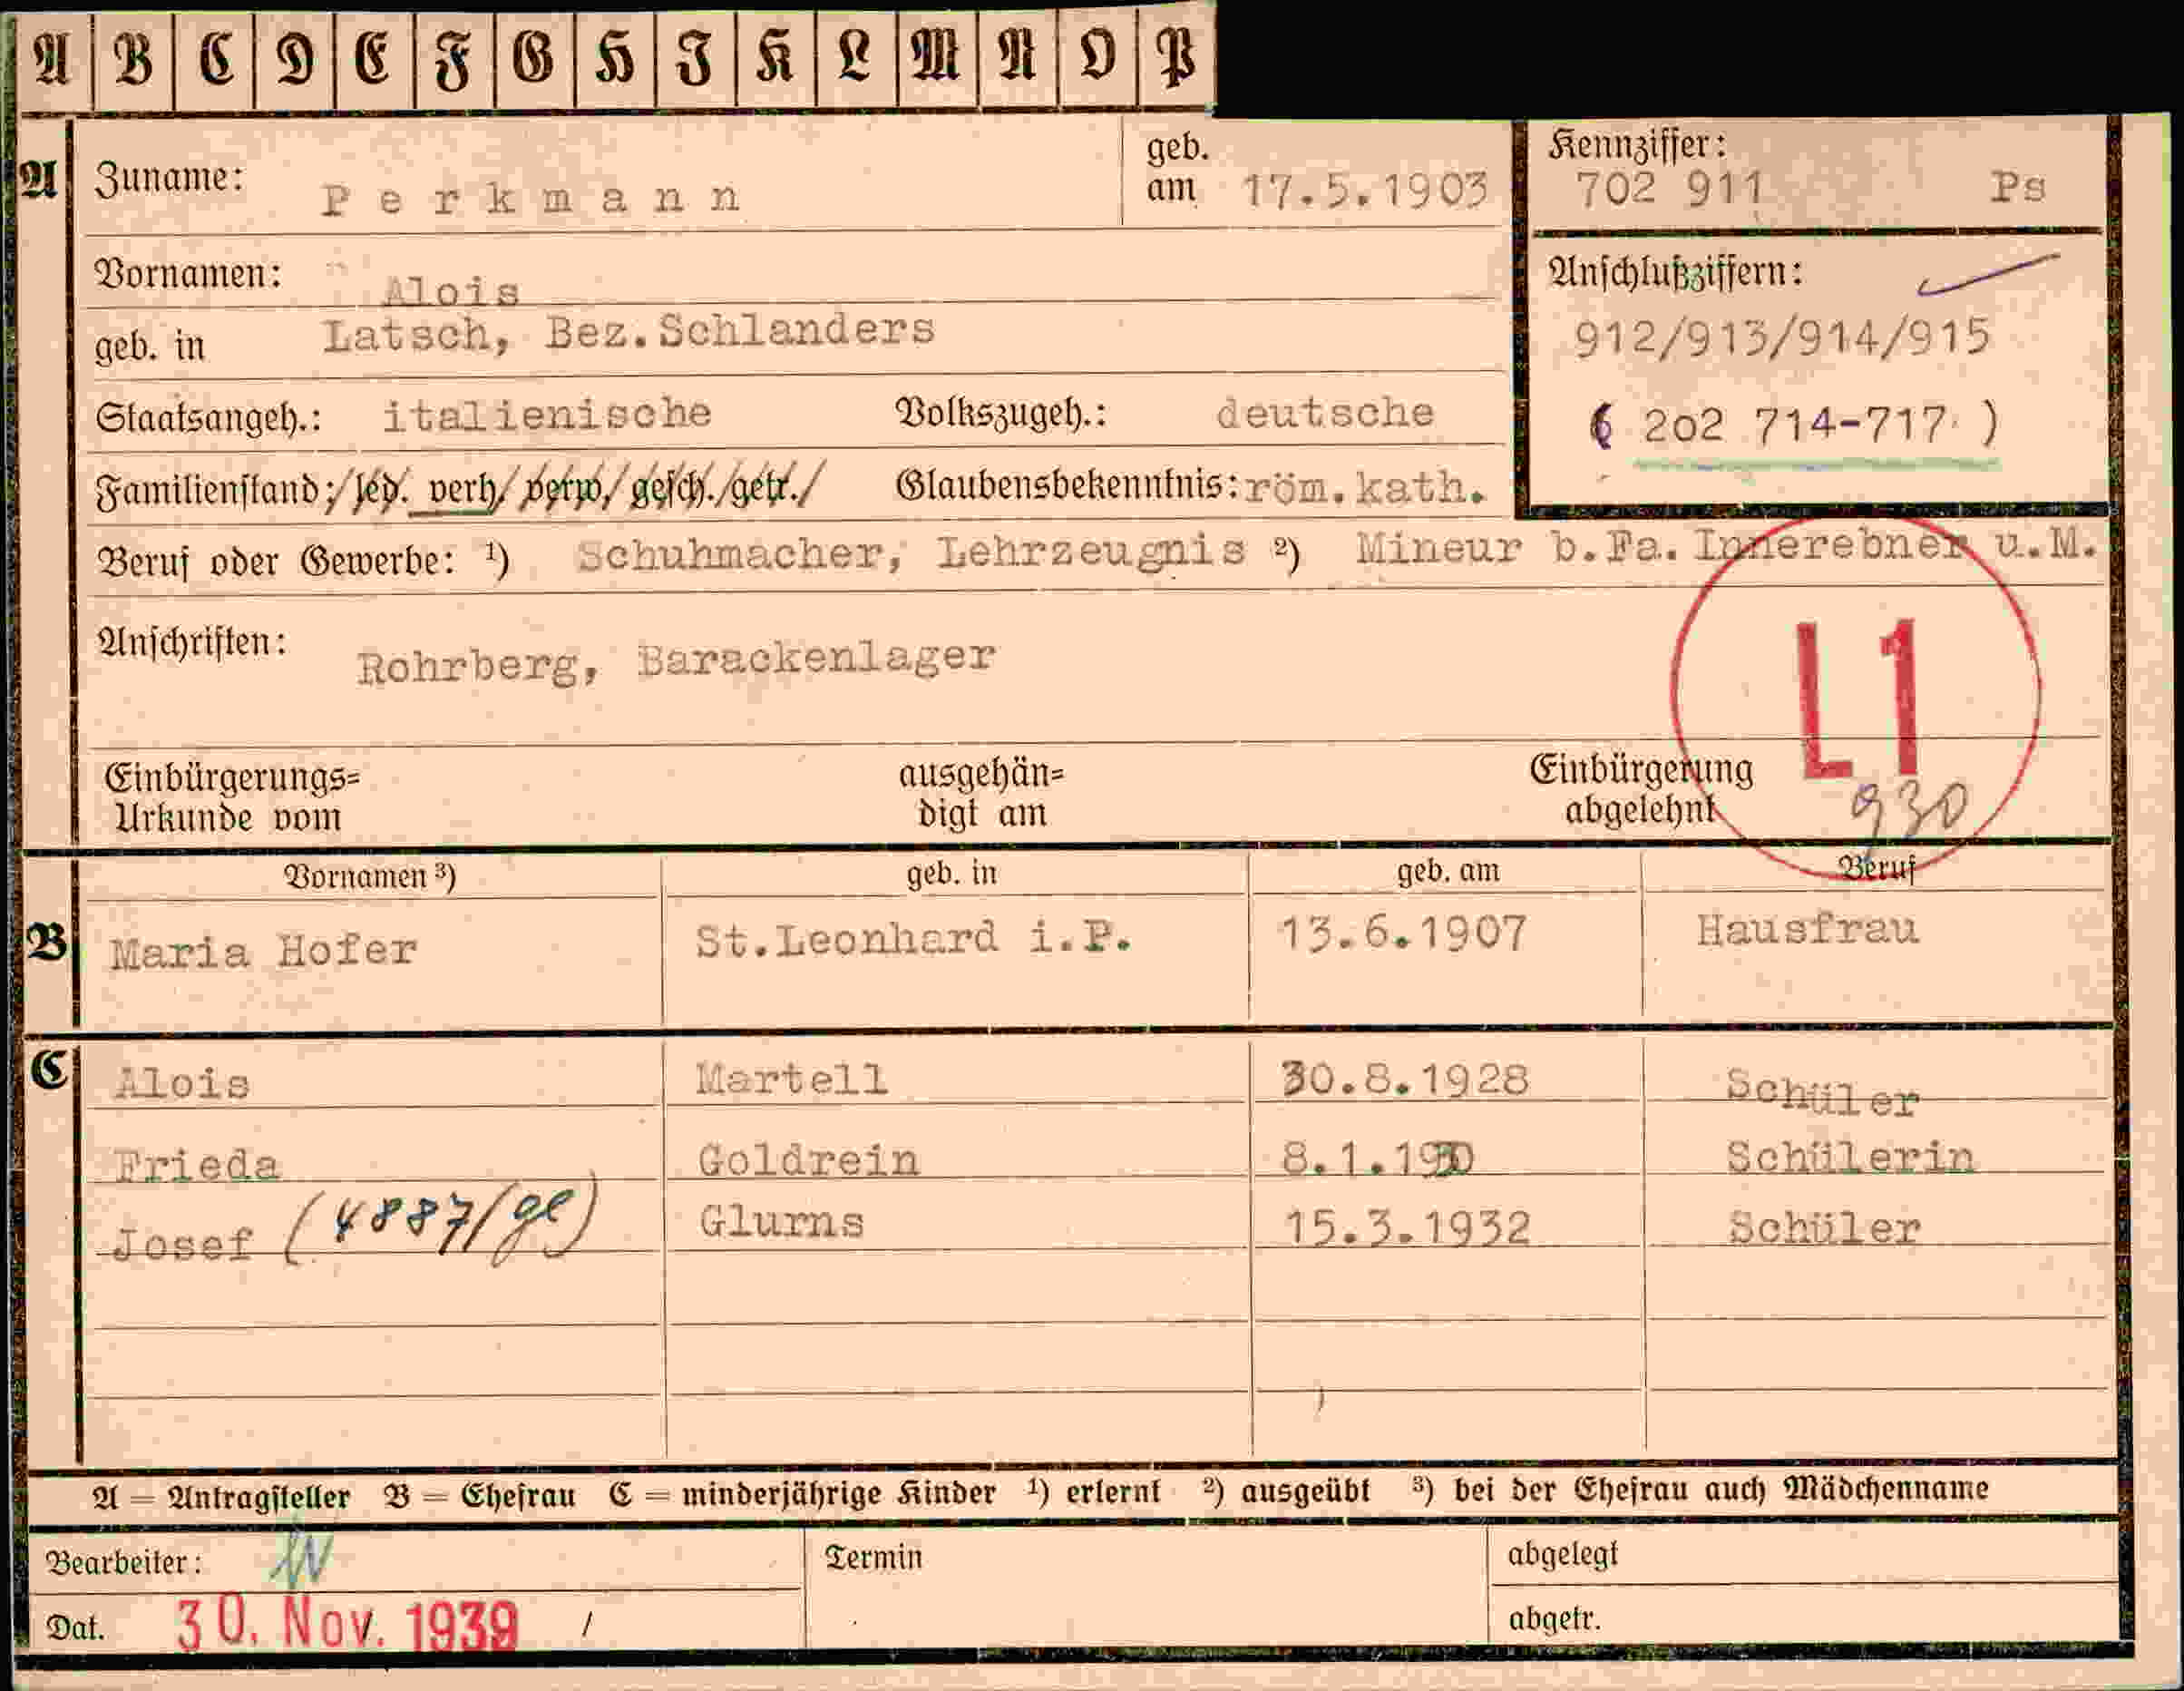 A B C D E F G H I K L M N O P
A Zuname: Perkmann geb. am 17.5.1903
Kennziffer: 702 911 Ps
Vornamen: Alois
Anschlußziffern:
912/913/914/915
( 2o2 714-717 )
geb. in Latsch, Bez.Schlanders
Staatsangeh.: italienische Volkszugeh.: deutsche
Familienstand: led. verh. verw. gesch. getr. Glaubensbekenntnis: röm.kath.
Beruf oder Gewerbe: ¹) Schuhmacher, Lehrzeugnis ²) Mineur b.Fa.Innerebner u.M.
Anschriften: Rohrberg, Barackenlager
L1
930
Einbürgerungs=
Urkunde vom
ausgehän=
digt am
Einbürgerung
abgelehnt
Vornamen ³) geb. in geb. am Beruf
B Maria Hofer St.Leonhard i.P. 13.6.1907 Hausfrau
C Alois Martell 30.8.1928 Schüler
Frieda Goldrein 8.1.1930 Schülerin
Josef (4887/ge) Glurns 15.3.1932 Schüler
A = Antragsteller B = Ehefrau C = minderjährige Kinder ¹) erlernt ²) ausgeübt ³) bei der Ehefrau auch Mädchenname
Bearbeiter: Termin abgelegt
Dat. 30. Nov. 1939 / abgetr.